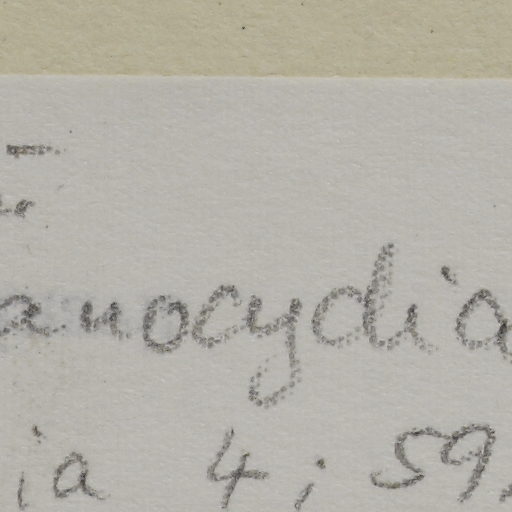 anocydia
ia 4; 59,